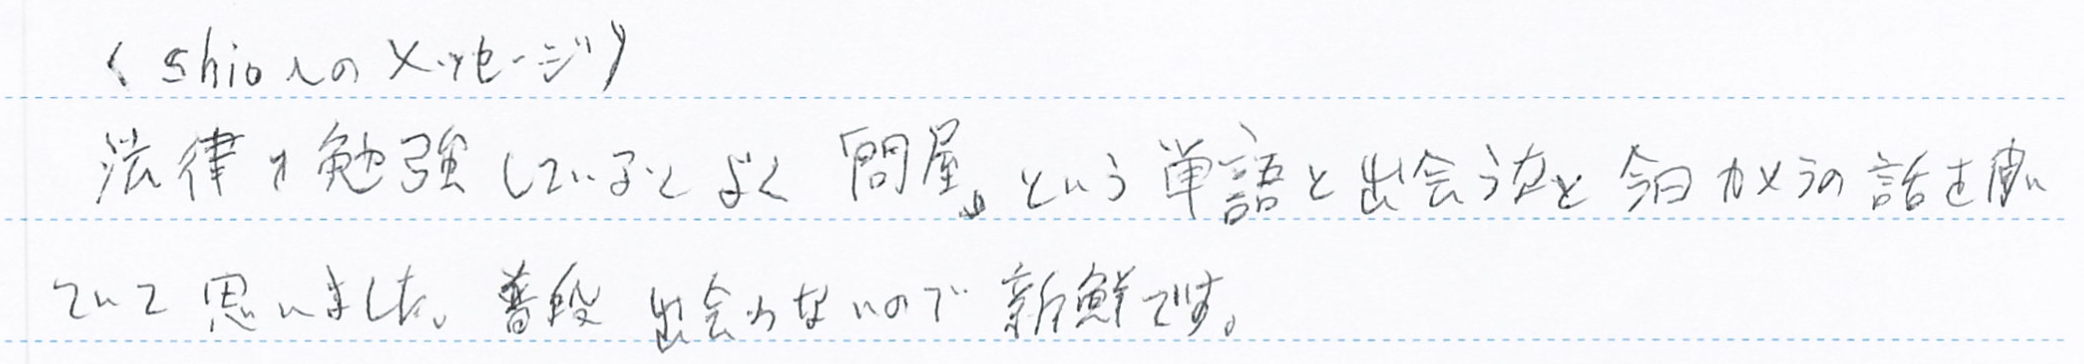 〈shioんのメッセージ〉
法律を勉強しているとよく「問屋」という単語と出会うなと今日カメラの話を聞い
ていて思いました。普段出会わないので新鮮です。